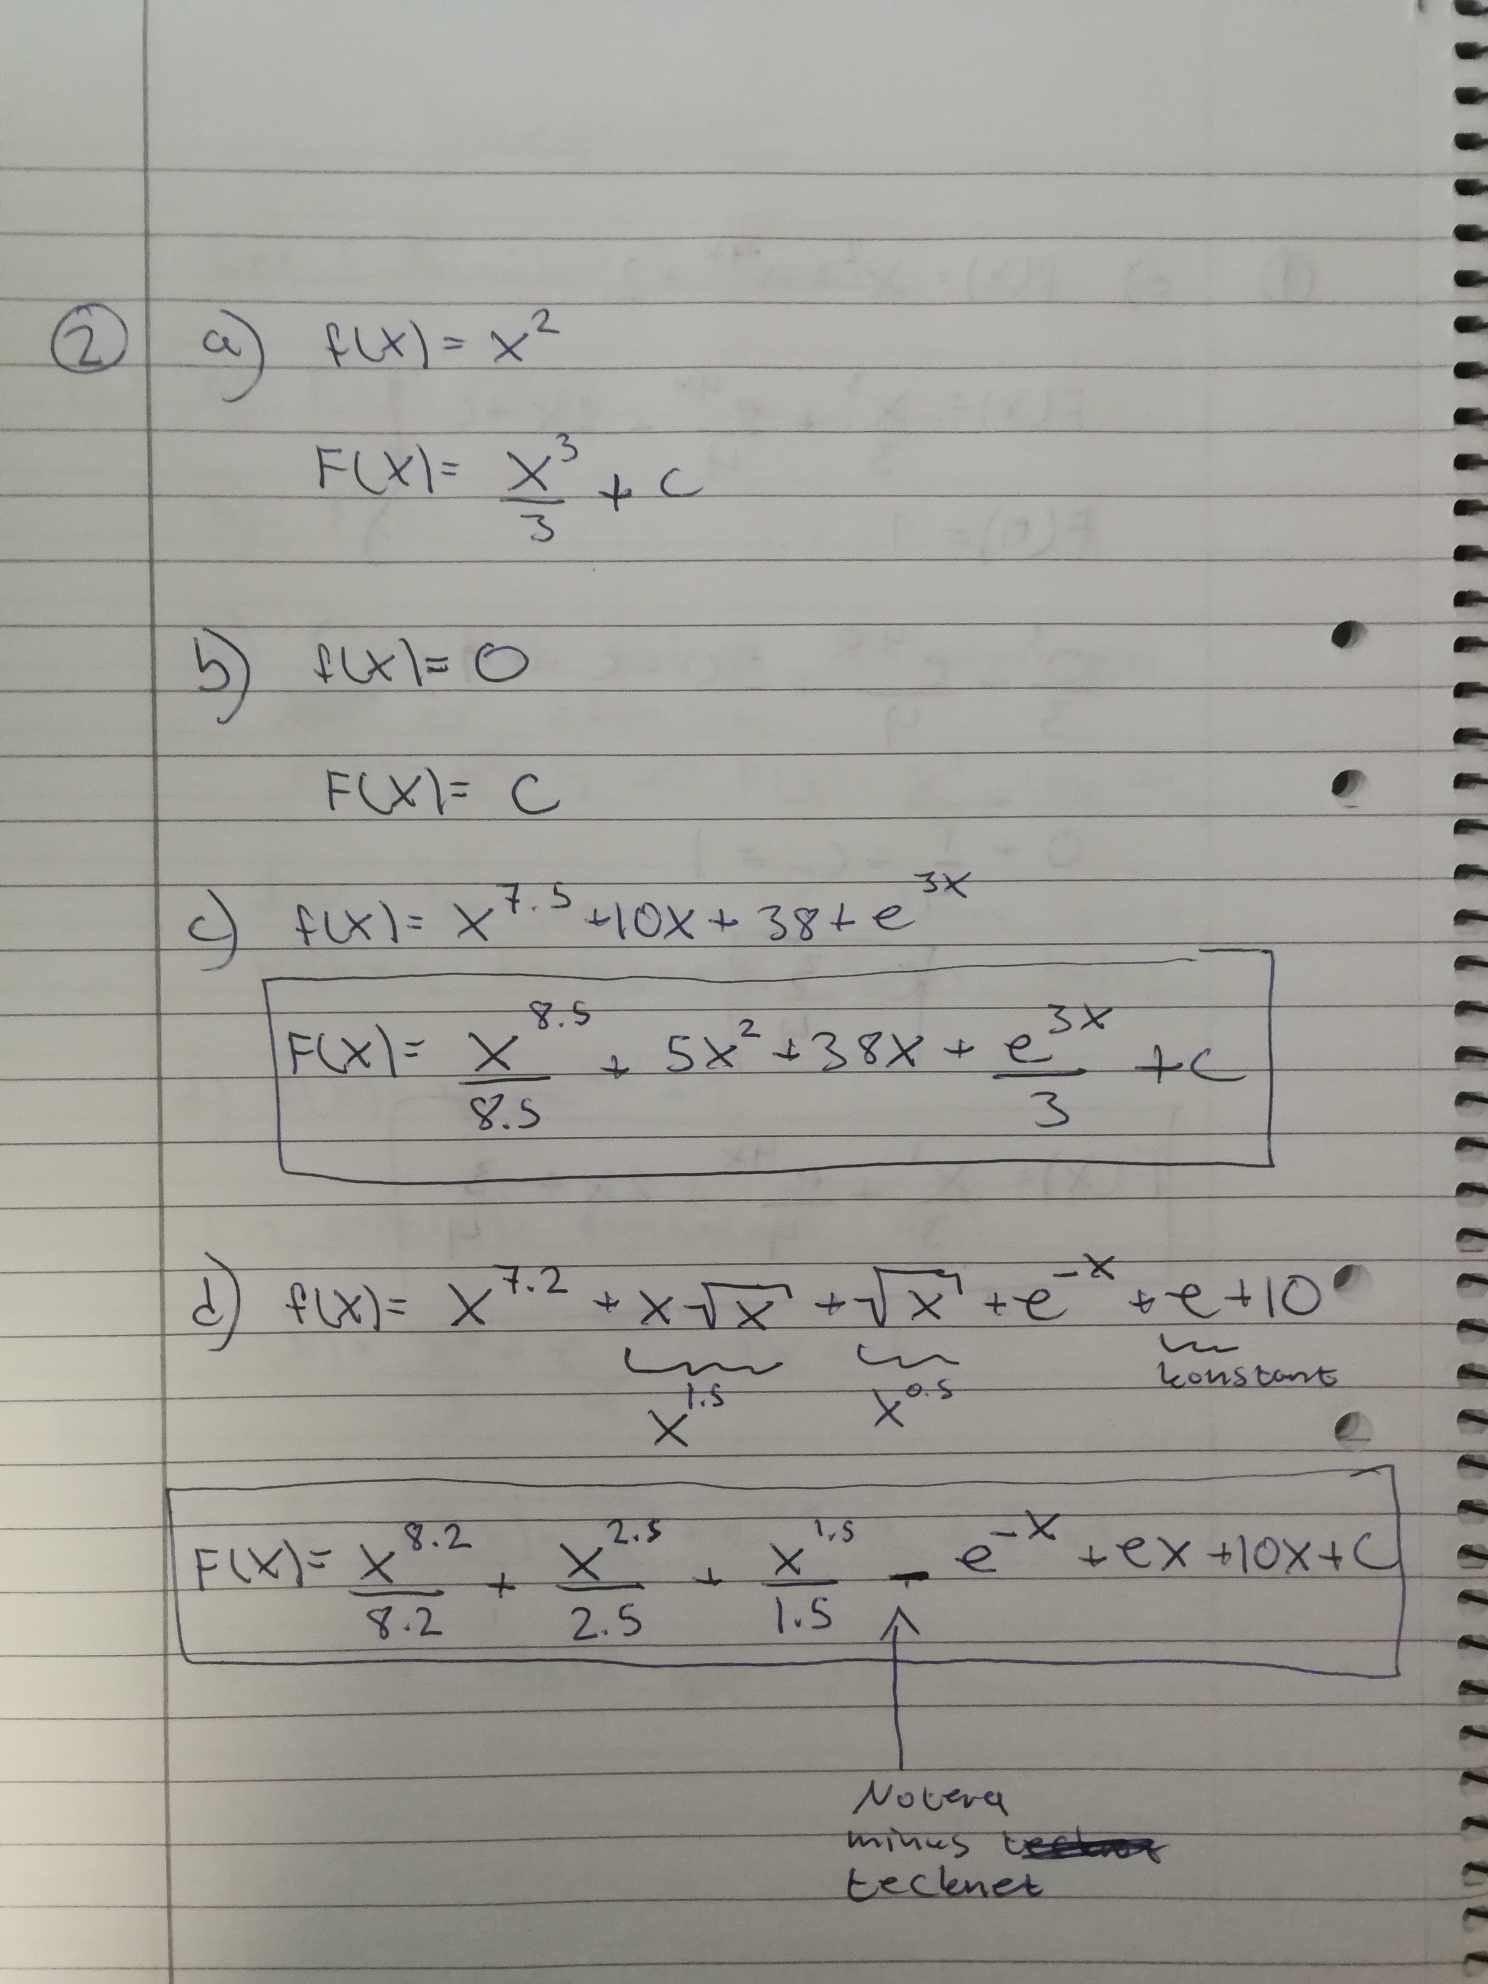 2 a) f(x) = x^2
F(x) = x^3/3 + C
b) f(x) = 0
F(x) = C
c) f(x) = x^7.5 + 10x + 38 + e^3x
F(x) = x^8.5/8.5 + 5x^2 + 38x + e^3x/3 + C
d) f(x) = x^7.2 + x√x + √x + e^-x + e + 10
konstant
x^1.5 x^0.5
F(x) = x^8.2/8.2 + x^2.5/2.5 + x^1.5/1.5 - e^-x + ex + 10x + C
Notera
minus
tecknet